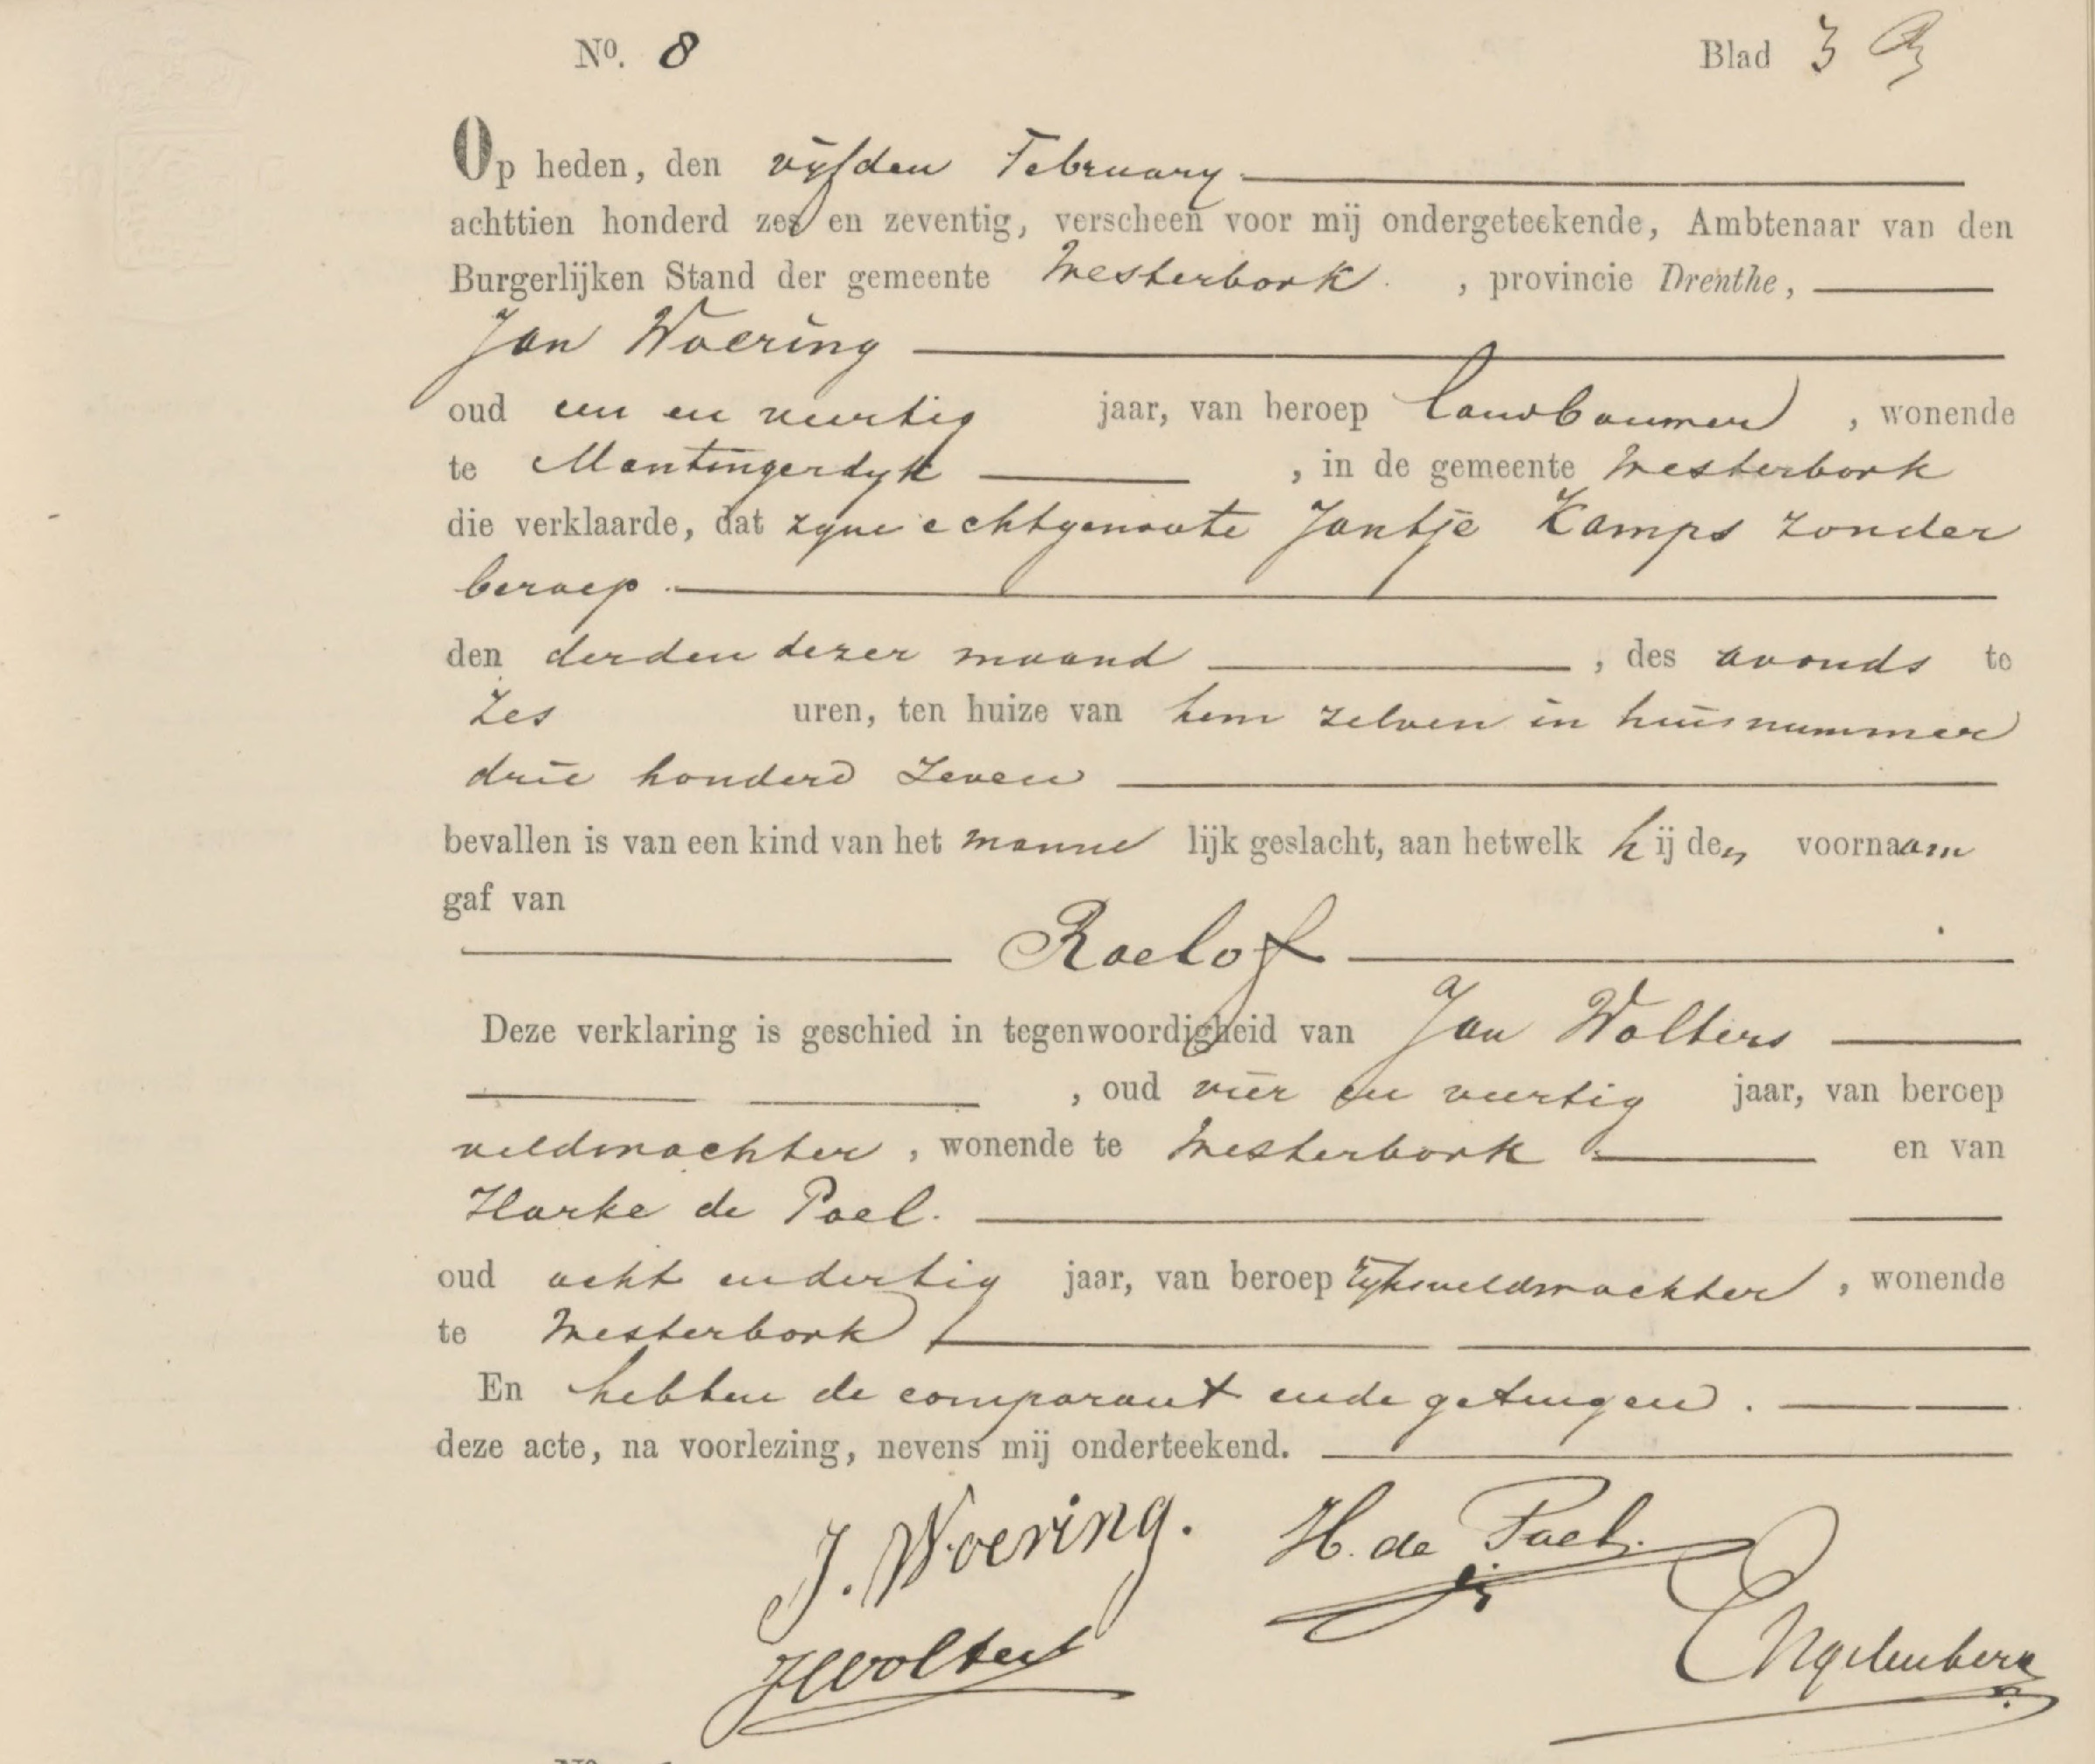 No. 8 Blad 3
Op heden, den vijfden February
achttien honderd zes en zeventig, verscheen voor mij ondergeteekende, Ambtenaar van den
Burgerlijken Stand der gemeente Westerbork , provincie Drenthe,
Jan Woering
oud een en veertig jaar, van beroep landbouwer , wonende
te Mantingerdyk , in de gemeente Westerbork
die verklaarde, dat zyne echtgenoote Jantje Kamps zonder
beroep.
den derden dezer maand , des avonds te
zes uren, ten huize van hem zelven in huisnummer
drie honderd zeven
bevallen is van een kind van het manne lijk geslacht, aan hetwelk hij den voornaam
gaf van
Roelof
Deze verklaring is geschied in tegenwoordigheid van Jan Wolters
, oud vier en veertig jaar, van beroep
veldwachter , wonende te Westerbork en van
Harke de Poel.
oud acht en dertig jaar, van beroep ryksveldwachter , wonende
te Westerbork
En hebben de comparant en de getuigen .
deze acte, na voorlezing, nevens mij onderteekend.
J. Woering. H. de Poel.
JWolters
Engelenberg